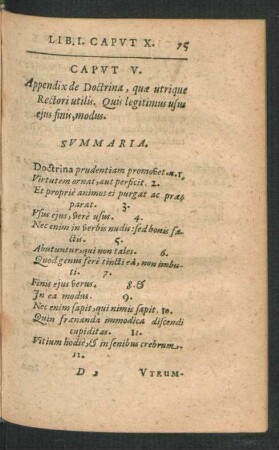 LIB. I. CAPVT X. 75
CAPVT V.
Appendix de Doctrina, quæ utrique
Rectori utilis. Quis legitimus usus
ejus finis, modus.
SVMMARIA.
Doctrina prudentiam promovet. n. 1.
Virtutem ornat, aut perficit. 2.
Et propriè animos ei purgat ac præ-
parat. 3.
Vsus ejus, verè usus. 4.
Nec enim in verbis nudis: sed bonis fa-
ctis. 5.
Abutuntur, qui non tales. 6.
Quod genus ferè tincti eâ, non imbu-
ti. 7.
Finis ejus verus. 8. &
In ea modus. 9.
Nec enim sapit, qui nimis sapit. 10.
Quin frænanda immodica discendi
cupiditas. 11.
Vitium hodiè, & in senibus crebrum.
12.
D 2 VTRUM-